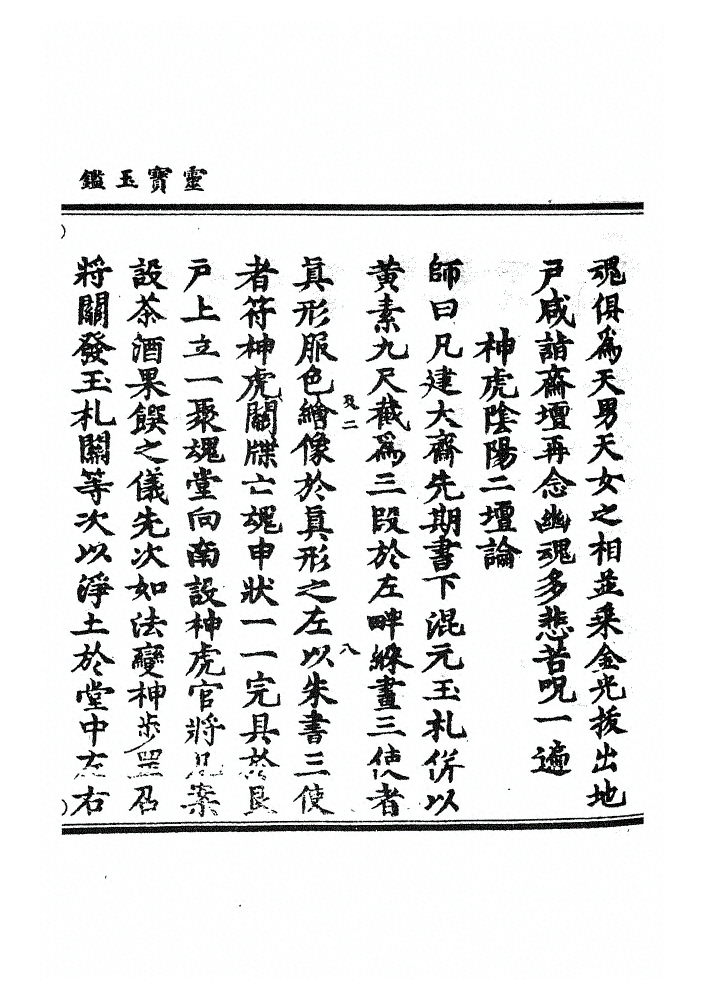 靈寶玉鑑
魂俱為天男天女之相並乗金光拔出地
戸咸詣齋壇再念幽魂多悲苦呪一遍
神虎陰陽二壇論
師曰凡建大齋先期書下混元玉札併以
黃素九尺截為三段於左畔綵畫三使者
真形服色繪像於真形之左以朱書三使
者符神虎關牒亡魂申狀一一完具於艮
戸上立一聚魂堂向南設神虎官將几案
設茶酒果饌之儀先次如法變神步罡召
將關發玉札關等次以淨土於堂中左右
二
八